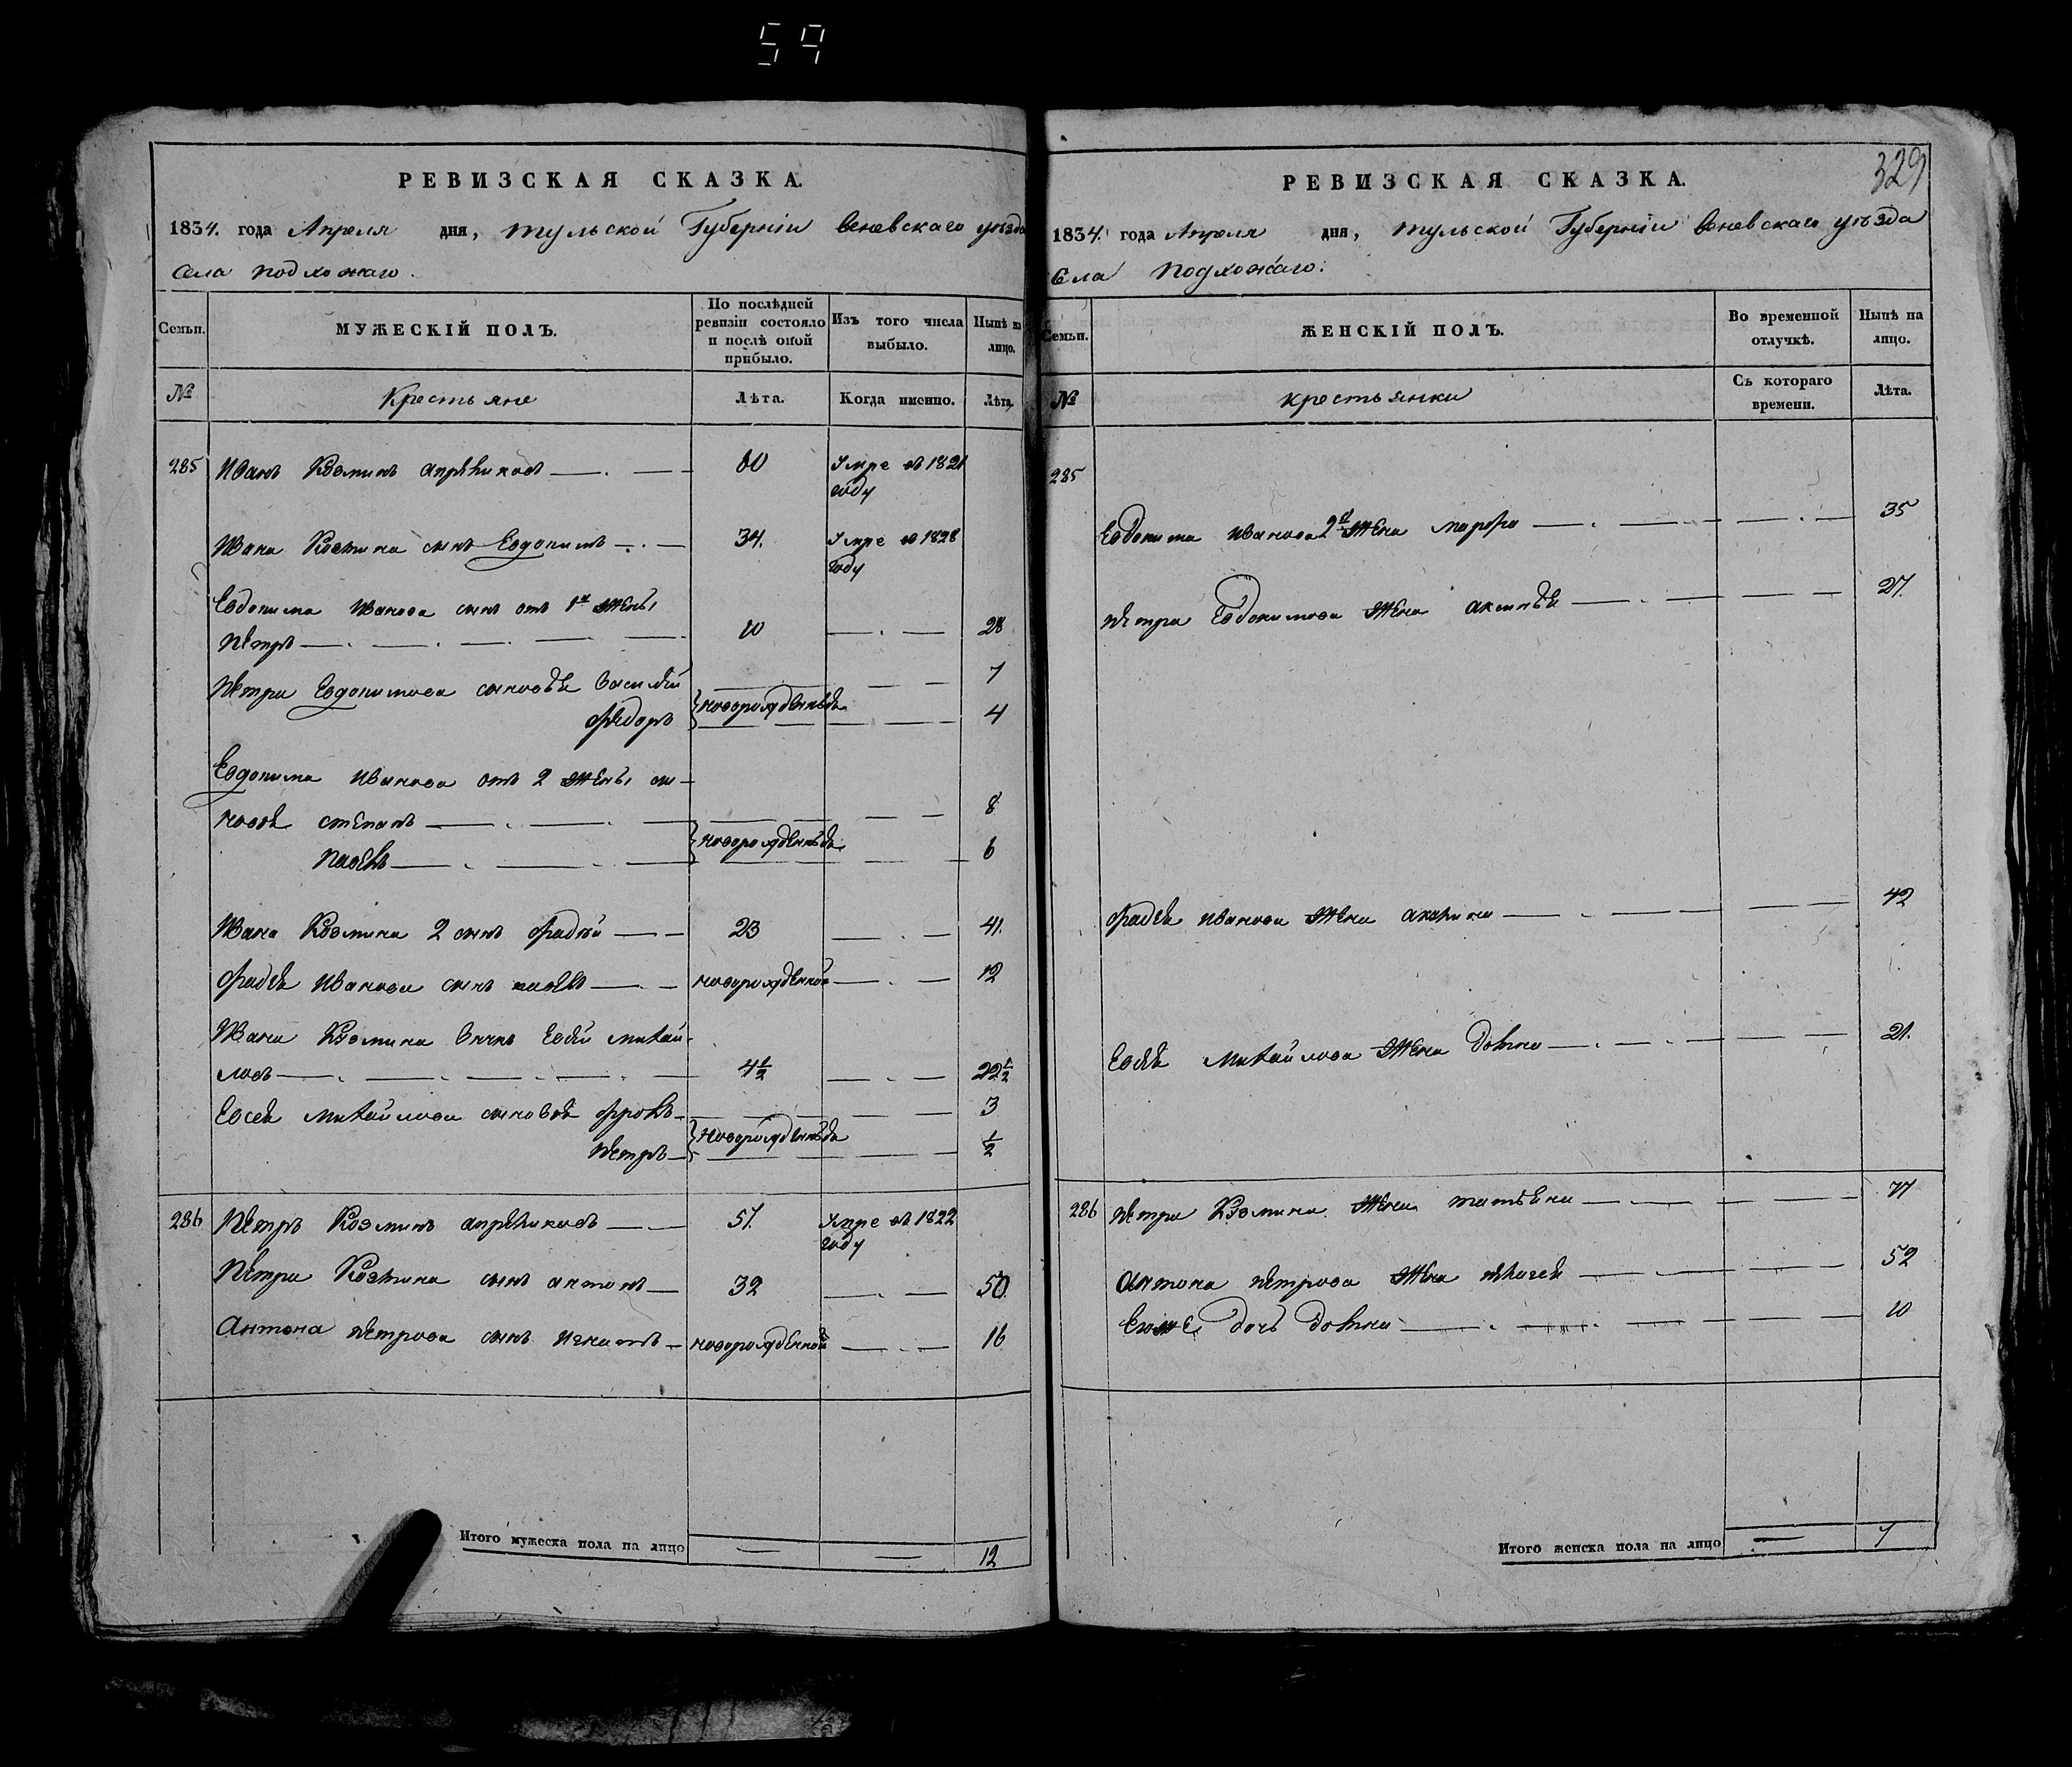 59
РЕВИЗСКАЯ СКАЗКА.
1834. года Апреля дня, Тульской Губерніи Веневскаго уъзда
села Подхожаго.
Семьи.
МУЖЕСКІЙ ПОЛЪ.
По послѣдней ревизіи состояло и послѣ оной прибыло.
Изъ того числа выбыло.
Нынѣ на лицо.
№
Крестьяне
Лѣта.
Когда именно.
Лѣта.
285 Иванъ Козминъ 60 Умре въ 1821
году
Ивана Козмина сынъ Евдокимъ 34. Умре въ 1828
году
Евдокима Иванова сынъ отъ 1й жены
Петръ 10 28
Петра Евдокимова сыновья Василий 7
новорожденныя
Федоръ 4
Евдокима Иванова отъ 2 жены сы-
новья Степанъ 8
новорожденныя
6
Ивана Козмина 2 сынъ Фадѣй 23 41.
Фадея Иванова сынъ новорожденной 12
Ивана Козмина внукъ Евсей Михай-
ловъ 4 1/2 22 1/2
Евсея Михайлова сыновья Фролъ 3
новорожденныя
Петръ 1/2
286 Петръ Козминъ 51. Умре въ 1822
году
Петра Козмина сынъ Антонъ 32 50.
Антона Петрова сынъ Игнатъ новорожденной 16
Итого мужеска пола на лицо 12
329
РЕВИЗСКАЯ СКАЗКА.
1834. года Апреля дня, Тульской Губерніи Веневскаго уъзда
Села Подхожаго.
Семьи.
ЖЕНСКІЙ ПОЛЪ.
Во временной отлучкѣ.
Нынѣ на лицо.
№
крестьянки
Съ котораго времени.
Лѣта.
285
Евдокима Иванова 2я жена Марфа 35
Петра Евдокимова жена 27.
Фадея Иванова жена 42
Евсея Михайлова жена Домна 21.
286 Петра Козмина жена Татьяна 77
Антона Петрова жена 52
Ево же дочь Домна 10
Итого женска пола на лицо 7